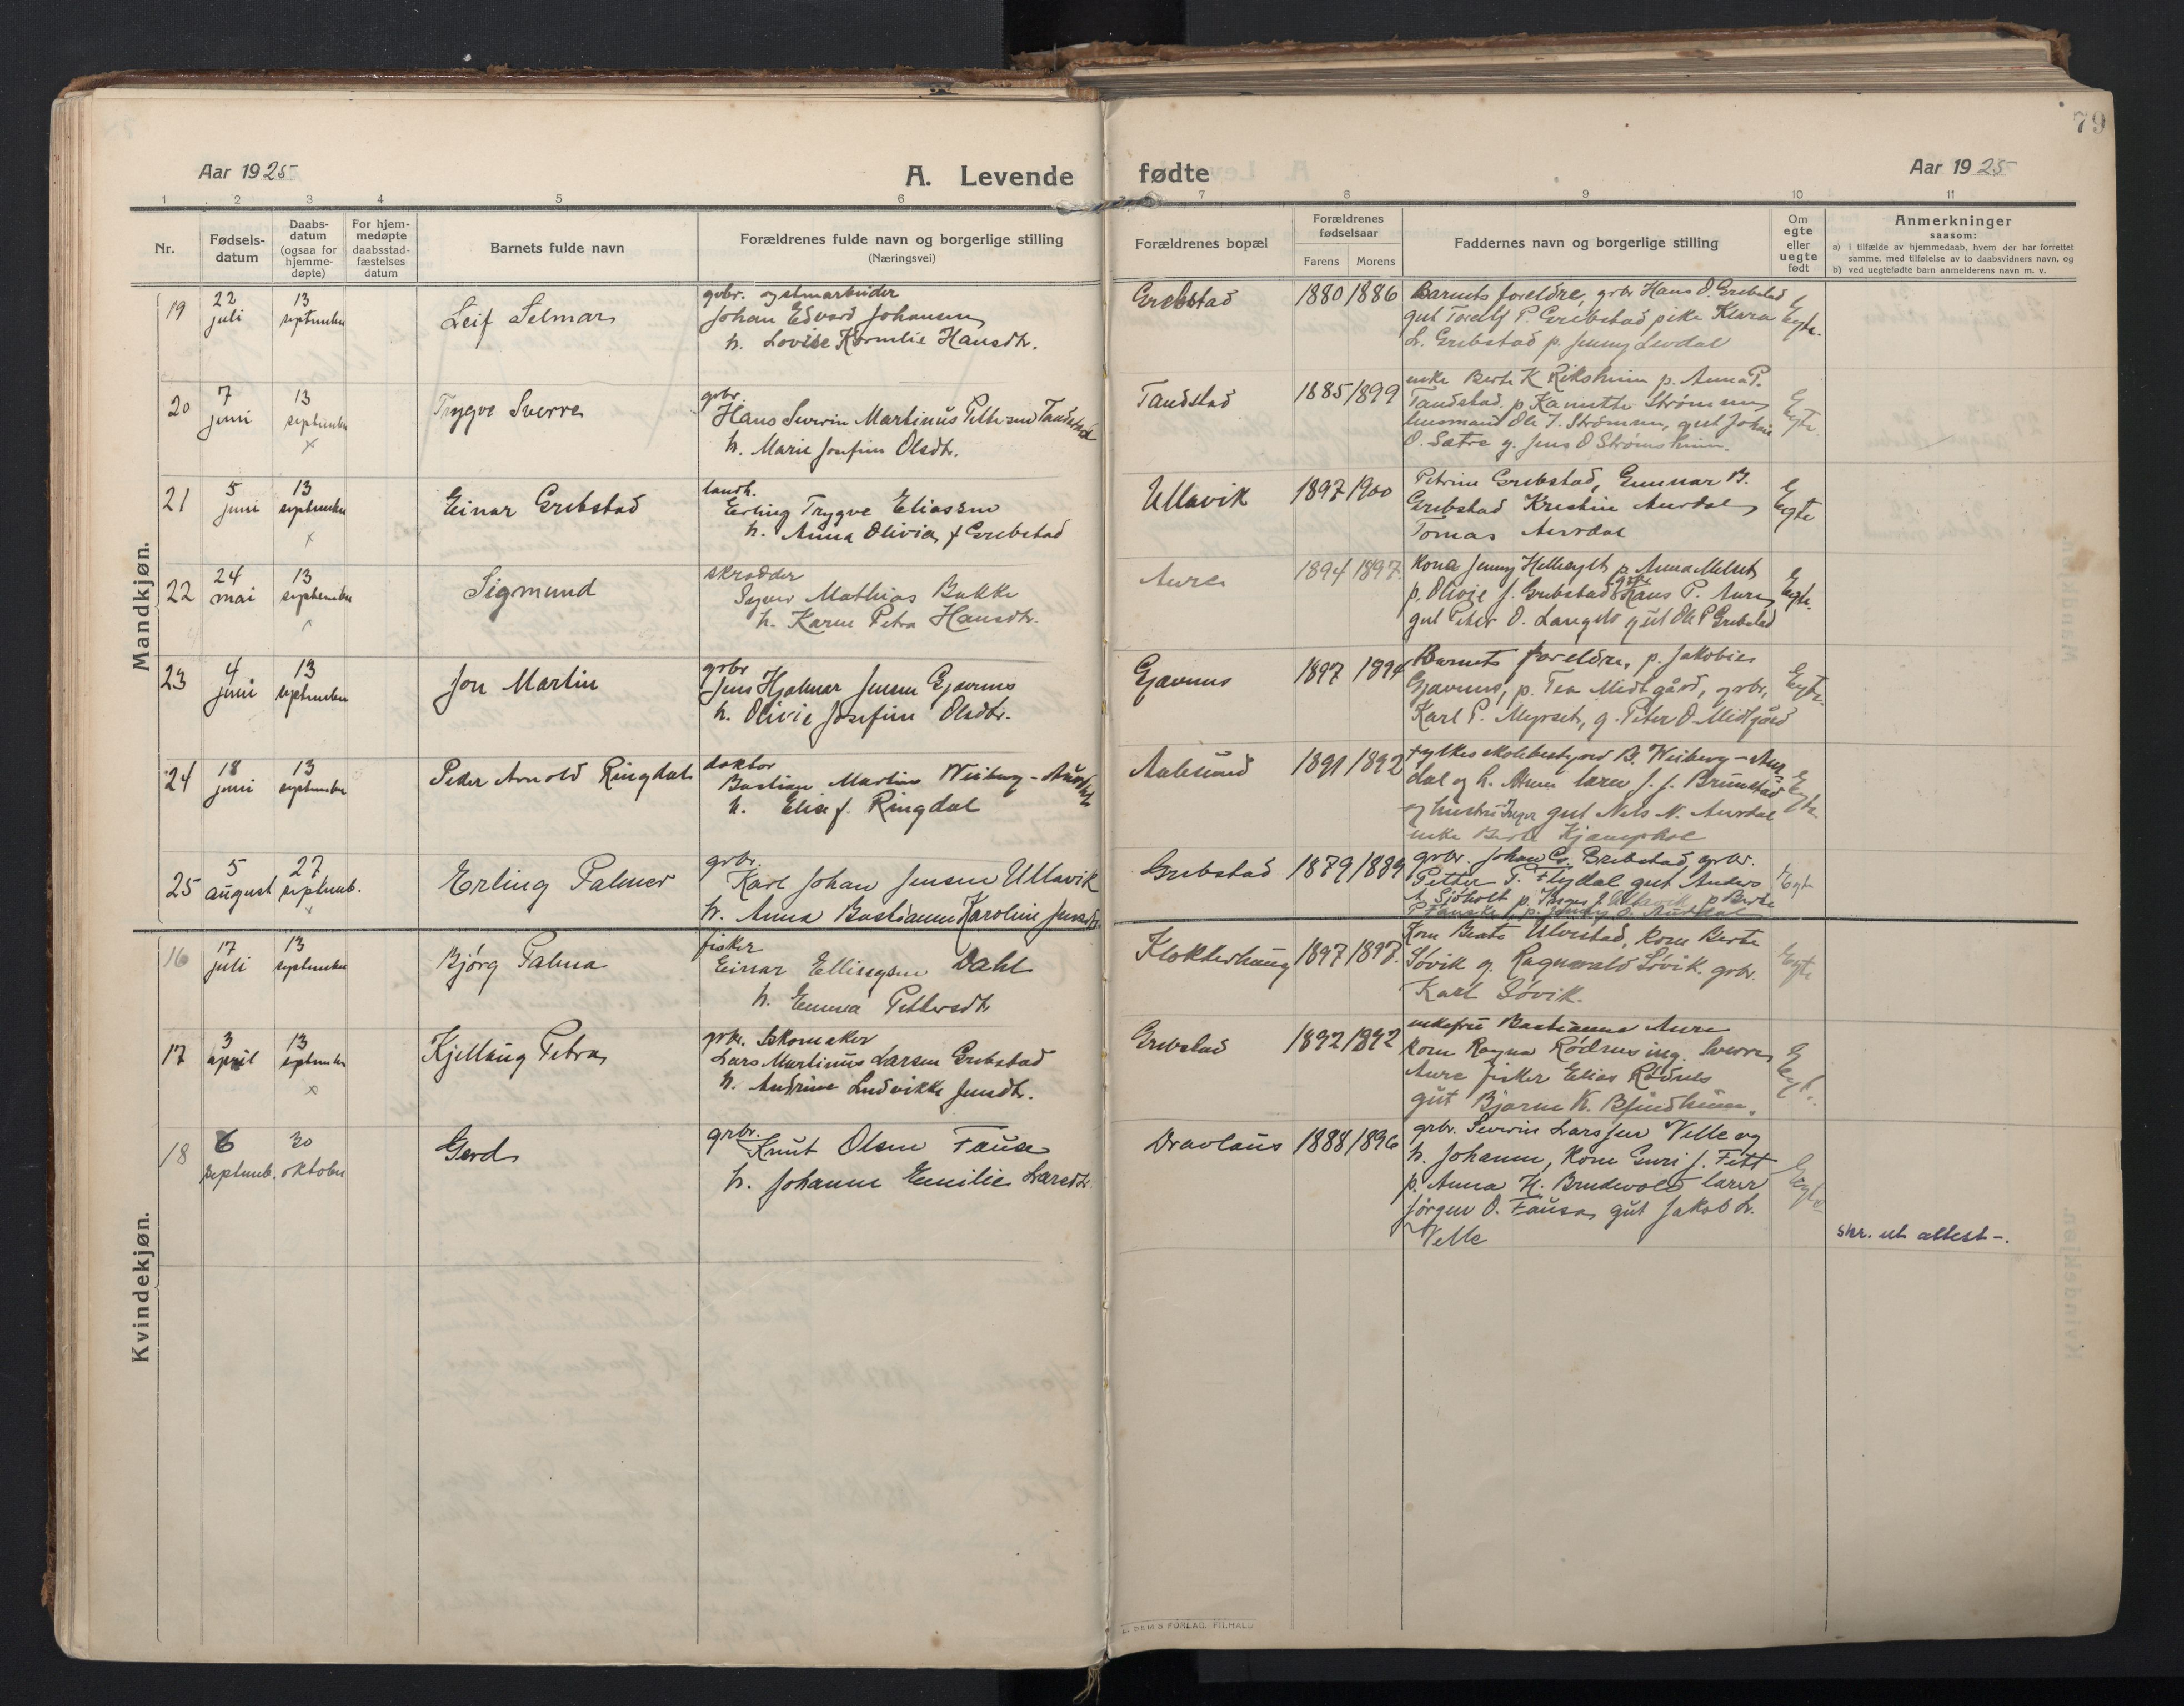 79
Aar 1925
A. Levende fødte
Aar 1925
1 2 3 4 5 6 7 8 9 10 11
Nr.
Fødsels-
datum
Daabs-
datum
(ogsaa for
hjemme-
døpte)
For hjem-
medøpte
daabsstad-
fæstelses
datum
Barnets fulde navn
Forældrenes fulde navn og borgerlige stilling
(Næringsvei)
Forældrenes bopæl
Forældrenes
fødselsaar
Farens Morens
Faddernes navn og borgerlige stilling
Om
egte
eller
uegte
født
Anmerkninger
saasom:
a) i tilfælde av hjemmedaab, hvem der har forrettet
samme, med tilføielse av to daabsvidners navn, og
b) ved uegtefødte barn anmelderens navn m. v.
Mandkjøn.
19
22
juli
13
september
Leif Selmar
grbr.
Johan Edvard Johansen
h. Lovise Kornelie Hansdtr.
Grebstad
1880 1886
Barnets foreldre, grbr Hans O. Grebstad
gut Toralf P. Grebstad pike Klara
L. Grebstad p. Jenny Levdal
Egte.
20
7
juni
13
september
x
Trygve Sverre
grbr.
Hans Severin Martinus Pettersen Tandstad
h. Marie Josefine Olsdtr.
Tandstad
1885 1899
enke Berte K Riksheim p. Anna P.
Tandstad. p. Kanutte Strømmen
husmand Ole J. Strømmen, gut Johan
O. Sætre g. Jens O Strømsheim.
Egte.
21
5
juni
13
september
x
Einar Grebstad
landh.
Erling Trygve Eliassen
h. Anna Olivia f Grebstad
Ullavik
1897 1900
Petrine Grebstad, Gunnar B.
Grebstad Kristine Aurdal
Tomas Aurdal
Egte
22
24
mai
13
september
Sigmund
skrædder
Mathias Bakke
h. Karen Petra Hansdtr.
Aure
1894 1897.
kona Jenny p. Anna Melset
p. Olivie J. Grebstad Hans P. Aure
gut Peter O. gut Ole P Grebstad
Egte.
23
4
juni
13
september
Jon Martin
grbr
Jens Hjalmar Jensen Gjævenes
h. Olivie Josefine Olsdtr.
Gjævenes
1897 1894
Barnets foreldre, p. Jakobie
Gjævenes, p. Tea Midtgård, grbr.
Karl P. Myrset, g. Peter O. Midtgård
Egte.
24
18
juni
13
september
Peder Arnold Ringdal
doktor
Bastian Martin Weiberg-Aurdal
h. Elise f. Ringdal
Aalesund
1891 1892
fylkesskolebestyrer B. Weiberg-Aur-
dal og h. lærer J. J. Brunstad
og hustru Inger gut Nels N. Aurdal
enke Berte Kjæmphol
Egte
25
5
august
27
septemb.
x
Erling Palmer
grbr.
Karl Johan Jensen Ullavik
h. Anna Bastianne Karoline Jensdtr.
Grebstad
1879 1889
grbr. Johan Cr. Grebstad, grbr.
Petter T. Flydal gut Anders
A. Sjøholt p. Inger J. Ullavik p Berte
P Fauske, p. Jenny O. Aurdal
Egte
Kvindekjøn.
16
17
juli
13
september
Bjørg Palma
fisker
Einar Ellingsen Dahl
h. Emma Pettersdtr
Klokkerhaug
1897 1897.
Kone Beate Ulvestad, kone Berte
Søvik g. Ragnvald Søvik. grbr.
Karl Søvik.
Egte
17
3
april
13
september
x
Kjellaug Petra
grbr. skomaker
Lars Martinus Larsen Grebstad
h. Andrine Ludvikke Jensdtr.
Grebstad
1892 1892
enkefru Bastianne Aure
kone Ragna Rødsnes ing. Sverre
Aure fisker Elias Rødsnes
gut Bjarne K.
Egte.
18
6
septemb.
30
oktober
Gerd
grbr.
Knut Olsen Fause
h. Johanne Emilie Larsdtr.
Dravlaus
1888 1896
grbr. Severin Larssen Velle og
h. Johanne, kone Guri J. Fett
p. Anna H. Brudevold lærer
Jørgen O. Fausa, gut Jakob L.
Velle
Egte
skr. ut attest -.